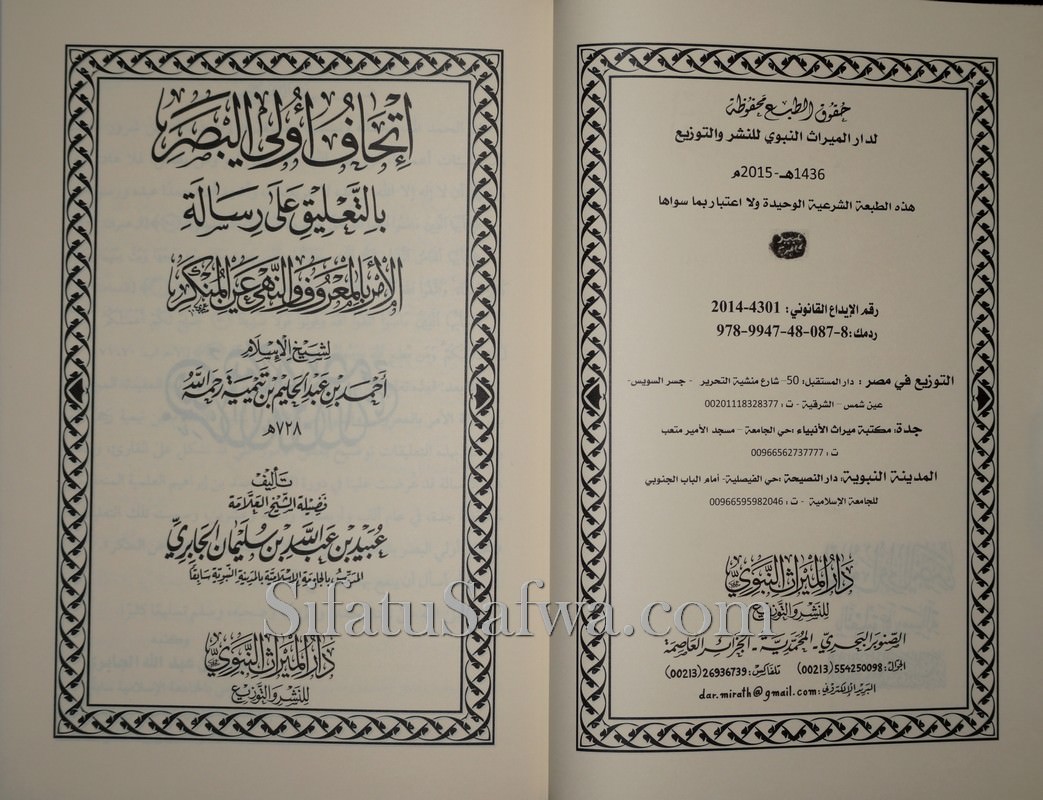 حقوق الطبع محفوظة
لدار الميراث النبوي للنشر والتوزيع
1436هـ-2015م
هذه الطبعة الشرعية الوحيدة ولا اعتبار بما سواها
رقم الإيداع القانوني: 4301-2014
ردمك: 8-087-48-9947-978
التوزيع في مصر: دار المستقبل: 50- شارع منشية التحرير - جسر السويس-
عين شمس - الشرقية - ت: 00201118328377
جدة: مكتبة ميراث الأنبياء: حي الجامعة - مسجد الأمير متعب
ت: 00966562737777
المدينة النبوية: دار النصيحة: حي الفيصلية- أمام الباب الجنوبي
للجامعة الإسلامية - ت: 00966595982046
دار الميراث النبوي
للنشر والتوزيع
الصنوبر البحري - المحمدية - الجزائر العاصمة
الجوال: 554250098(00213) تلفاكس: 26936739(00213)
البريد الإلكتروني: dar.mirath@gmail.com
إتحاف أولي البصر
بالتعليق على رسالة
الأمر بالمعروف والنهي عن المنكر
لشيخ الإسلام
أحمد بن عبد الحليم بن تيمية رحمه الله
٧٢٨هـ
تأليف
فضيلة الشيخ العلامة
عبيد بن عبد الله بن سليمان الجابري
المدرس بالجامعة الإسلامية بالمدينة النبوية سابقا
دار الميراث النبوي
للنشر والتوزيع
SifatuSafwa.com